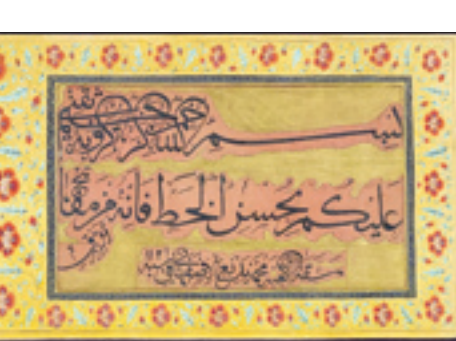 بسم الله الرحمن الرحيم وبه ثقتي
عليكم بحسن الخط فانه من مفاتيح الرزق
مشقه محمد